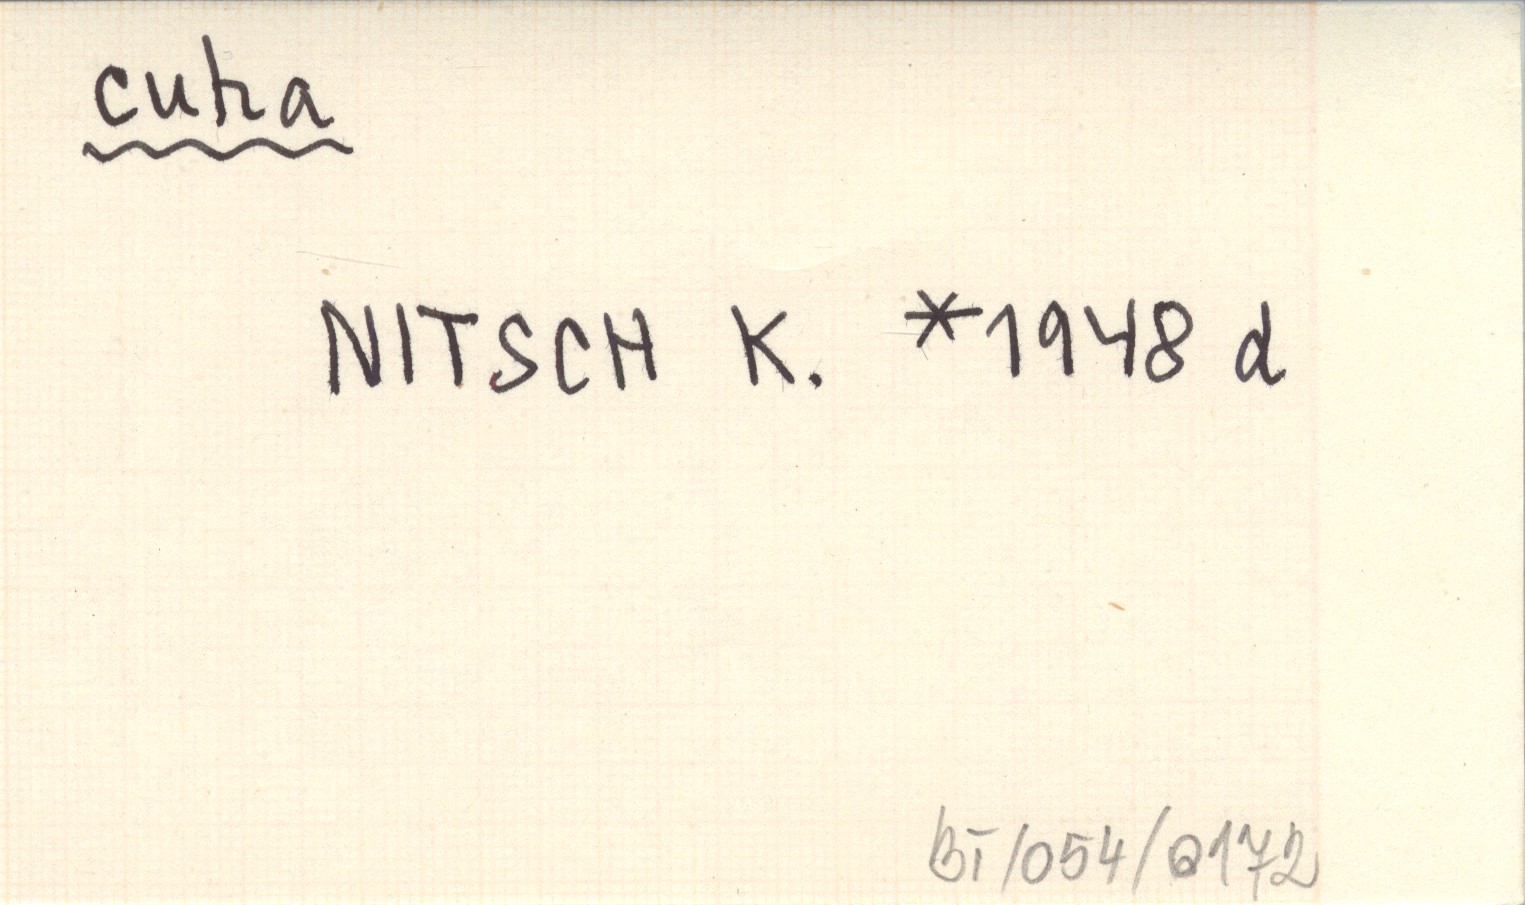 cuha
NITSCH K. *1948 d
BI/054/0172